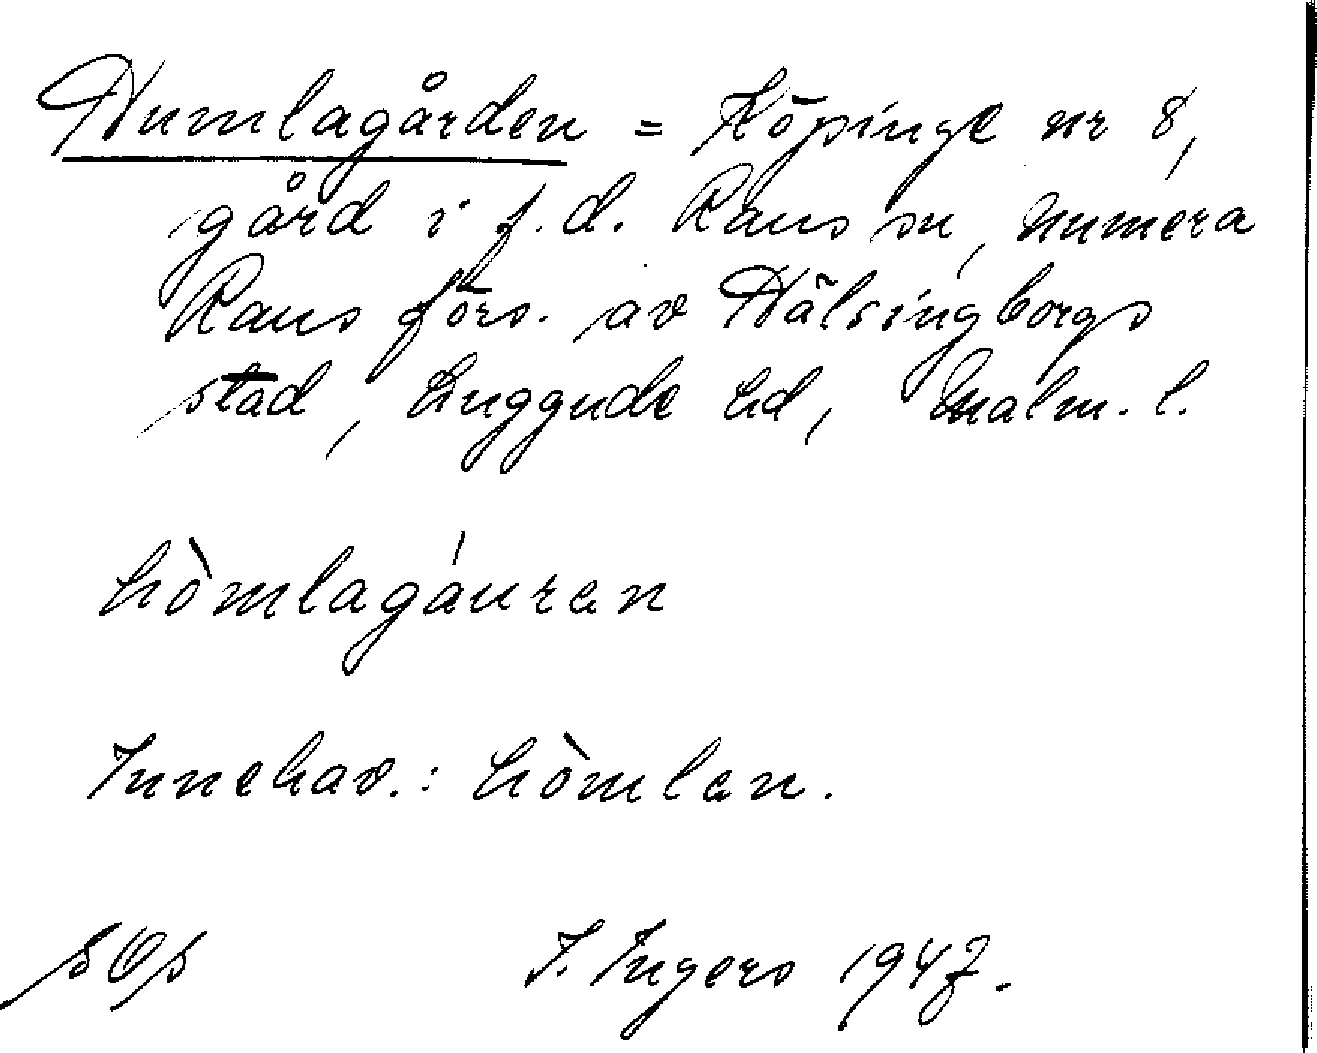 Humlagården = Köpinge nr 8,
gård i f.d. Raus sn, numera
Raus förs. av Hälsingborgs
stad, Luggude hd, Malm. l.
hòmlagáuren
Innehav.: hòmlen.
I. Ingers 1947.